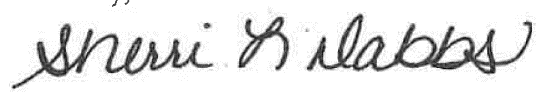 Sherri L. Dabbs